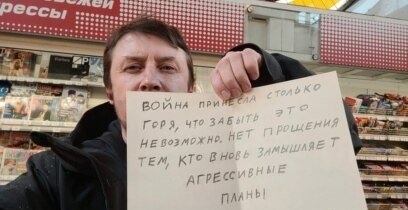 ВЕЖЕЙ
РЕССЫ
ВОЙНА ПРИНЕСЛА СТОЛЬКО
ГОРЯ, ЧТО ЗАБЫТЬ ЭТО
НЕВОЗМОЖНО. НЕТ ПРОЩЕНИЯ
ТЕМ, КТО ВНОВЬ ЗАМЫШЛЯЕТ
АГРЕССИВНЫЕ
ПЛАНЫ